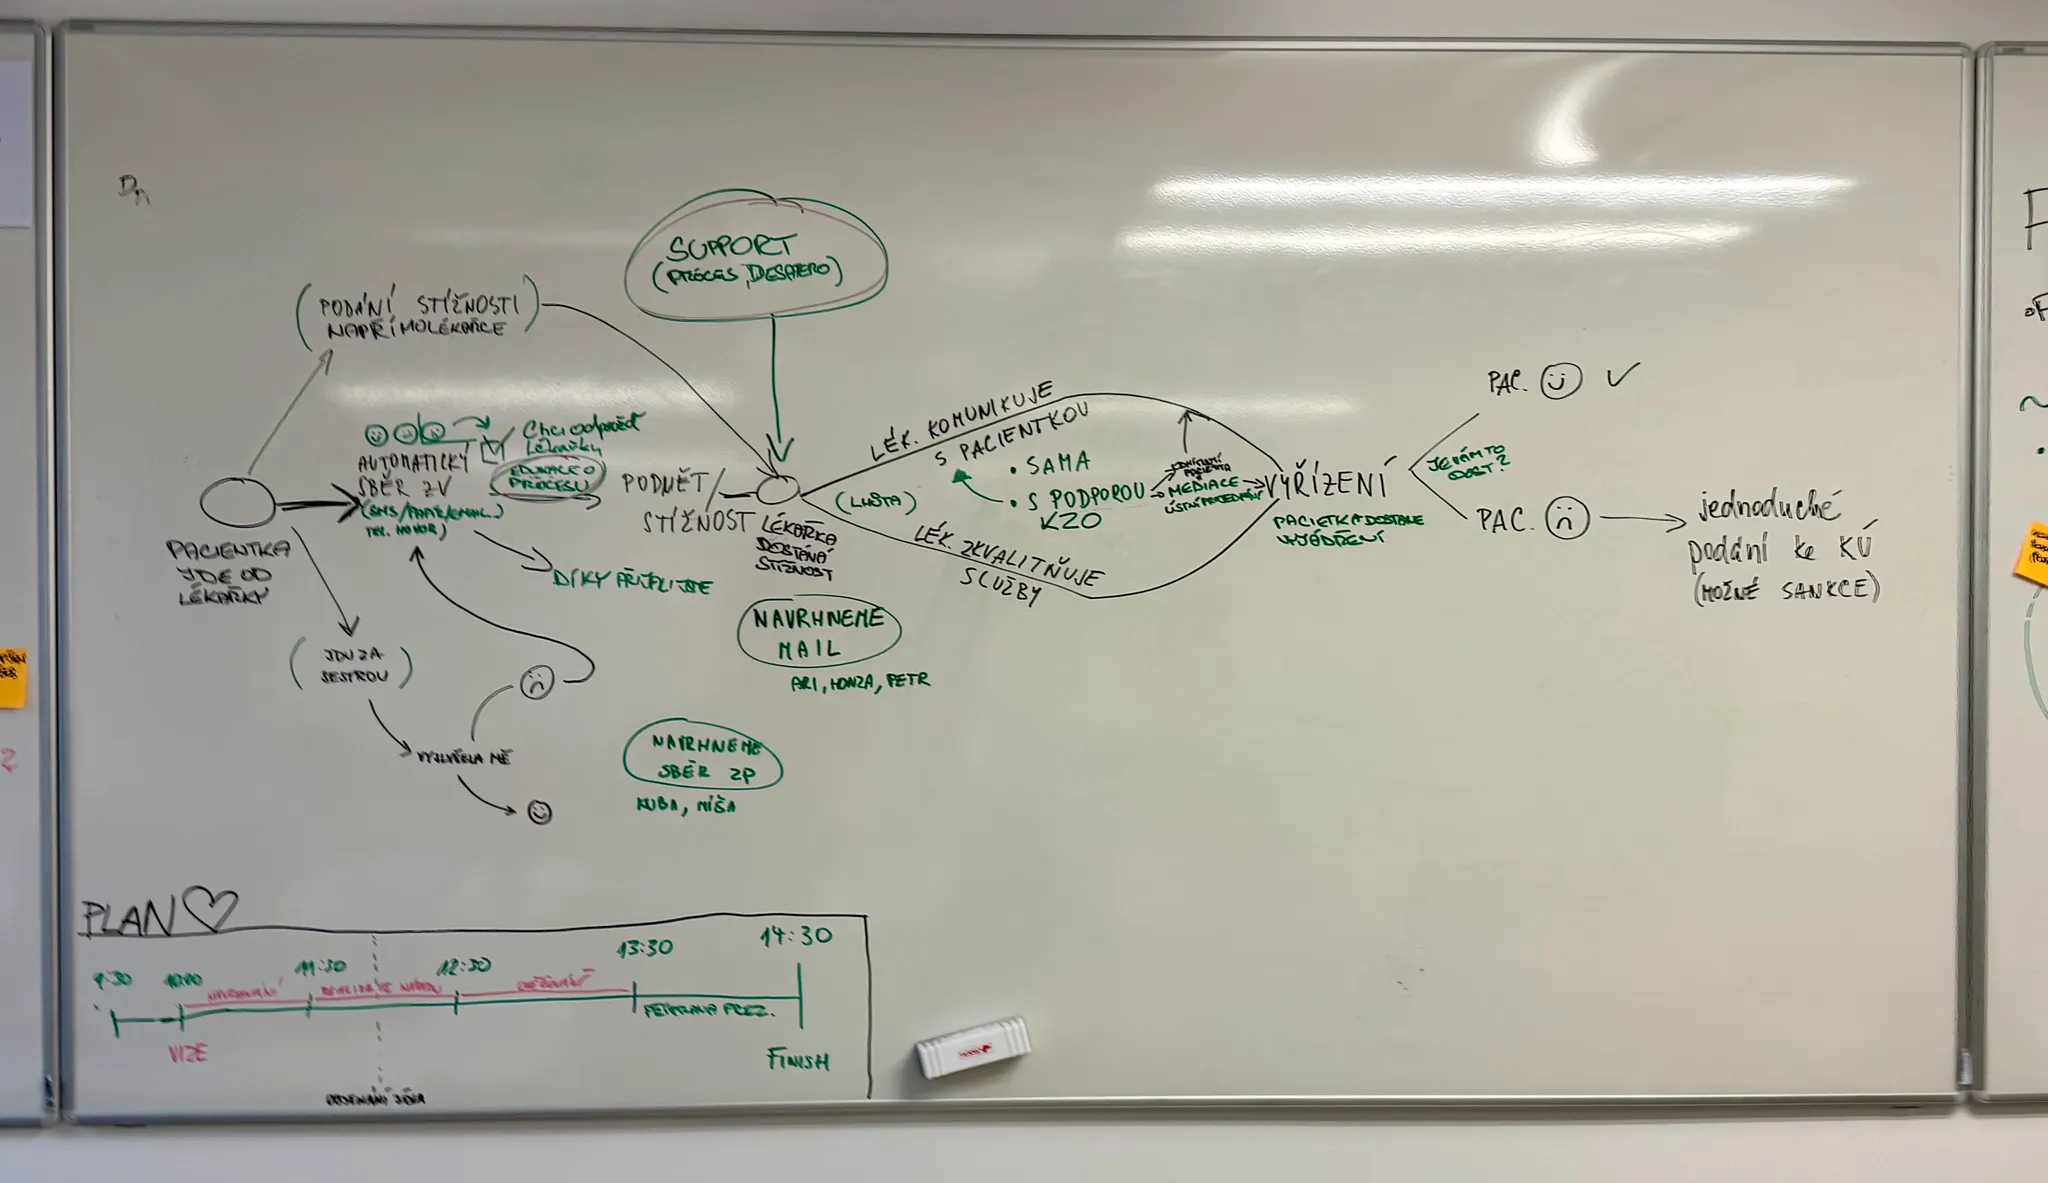 SUPPORT
(PROCES, DESATERO)
(PODÁNÍ STÍŽNOSTI
NAPŘÍMO LÉKAŘCE)
Chci odpověď
lékařky
AUTOMATICKÝ
SBĚR ZV
(SMS/PAPÍR/EMAIL.)
TEL. HOVOR)
EDUKACE O
PROCESU
PACIENTKA
JDE OD
LÉKAŘKY
DÍKY PŘIJELI JSTE
(JDU ZA
SESTROU)
VYSLYŠELA MĚ
PODNĚT/
STÍŽNOST
LÉKAŘKA
DOSTÁNÁ
STÍŽNOST
LÉK. KOMUNIKUJE
S PACIENTKOU
(LUSTA)
• SAMA
• S PODPOROU
KZO
LÉK. ZKVALITŇUJE
SLUŽBY
PACIENTA
MEDIACE
ÚSTNÍ PROJEDNÁNÍ
VYŘÍZENÍ
PACIETKA DOSTANE
VYJÁDŘENÍ
JE VÁM TO
DOST?
PAC.
PAC.
jednoduché
podání ke KÚ
(MOŽNÉ SANKCE)
NAVRHNEME
MAIL
ARI, HONZA, PETR
NAVRHNEME
SBĚR ZP
KUBA, MÍŠA
PLAN
9:30 10:00 11:30 12:30 13:30 14:30
PETRANA PREZ.
VIZE
FINISH